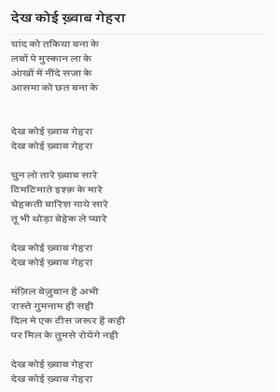 देख कोई ख़्वाब गेहरा
चांद को तकिया बना के
लबों पे मुस्कान ला के
आंखों में नींदे सजा के
आसमा को छत बना के
देख कोई ख़्वाब गेहरा
देख कोई ख़्वाब गेहरा
चुन लो तारे ख़्वाब सारे
टिमटिमाते इश्क़ के मारे
चेहकती बारिश गाये सारे
तू भी थोड़ा बेहेक ले प्यारे
देख कोई ख़्वाब गेहरा
देख कोई ख़्वाब गेहरा
मंज़िल बेज़ुबान है अभी
रास्ते गुमनाम ही सही
दिल मे एक टीस जरूर है कही
पर मिल के तुमसे रोयेंगे नही
देख कोई ख़्वाब गेहरा
देख कोई ख़्वाब गेहरा